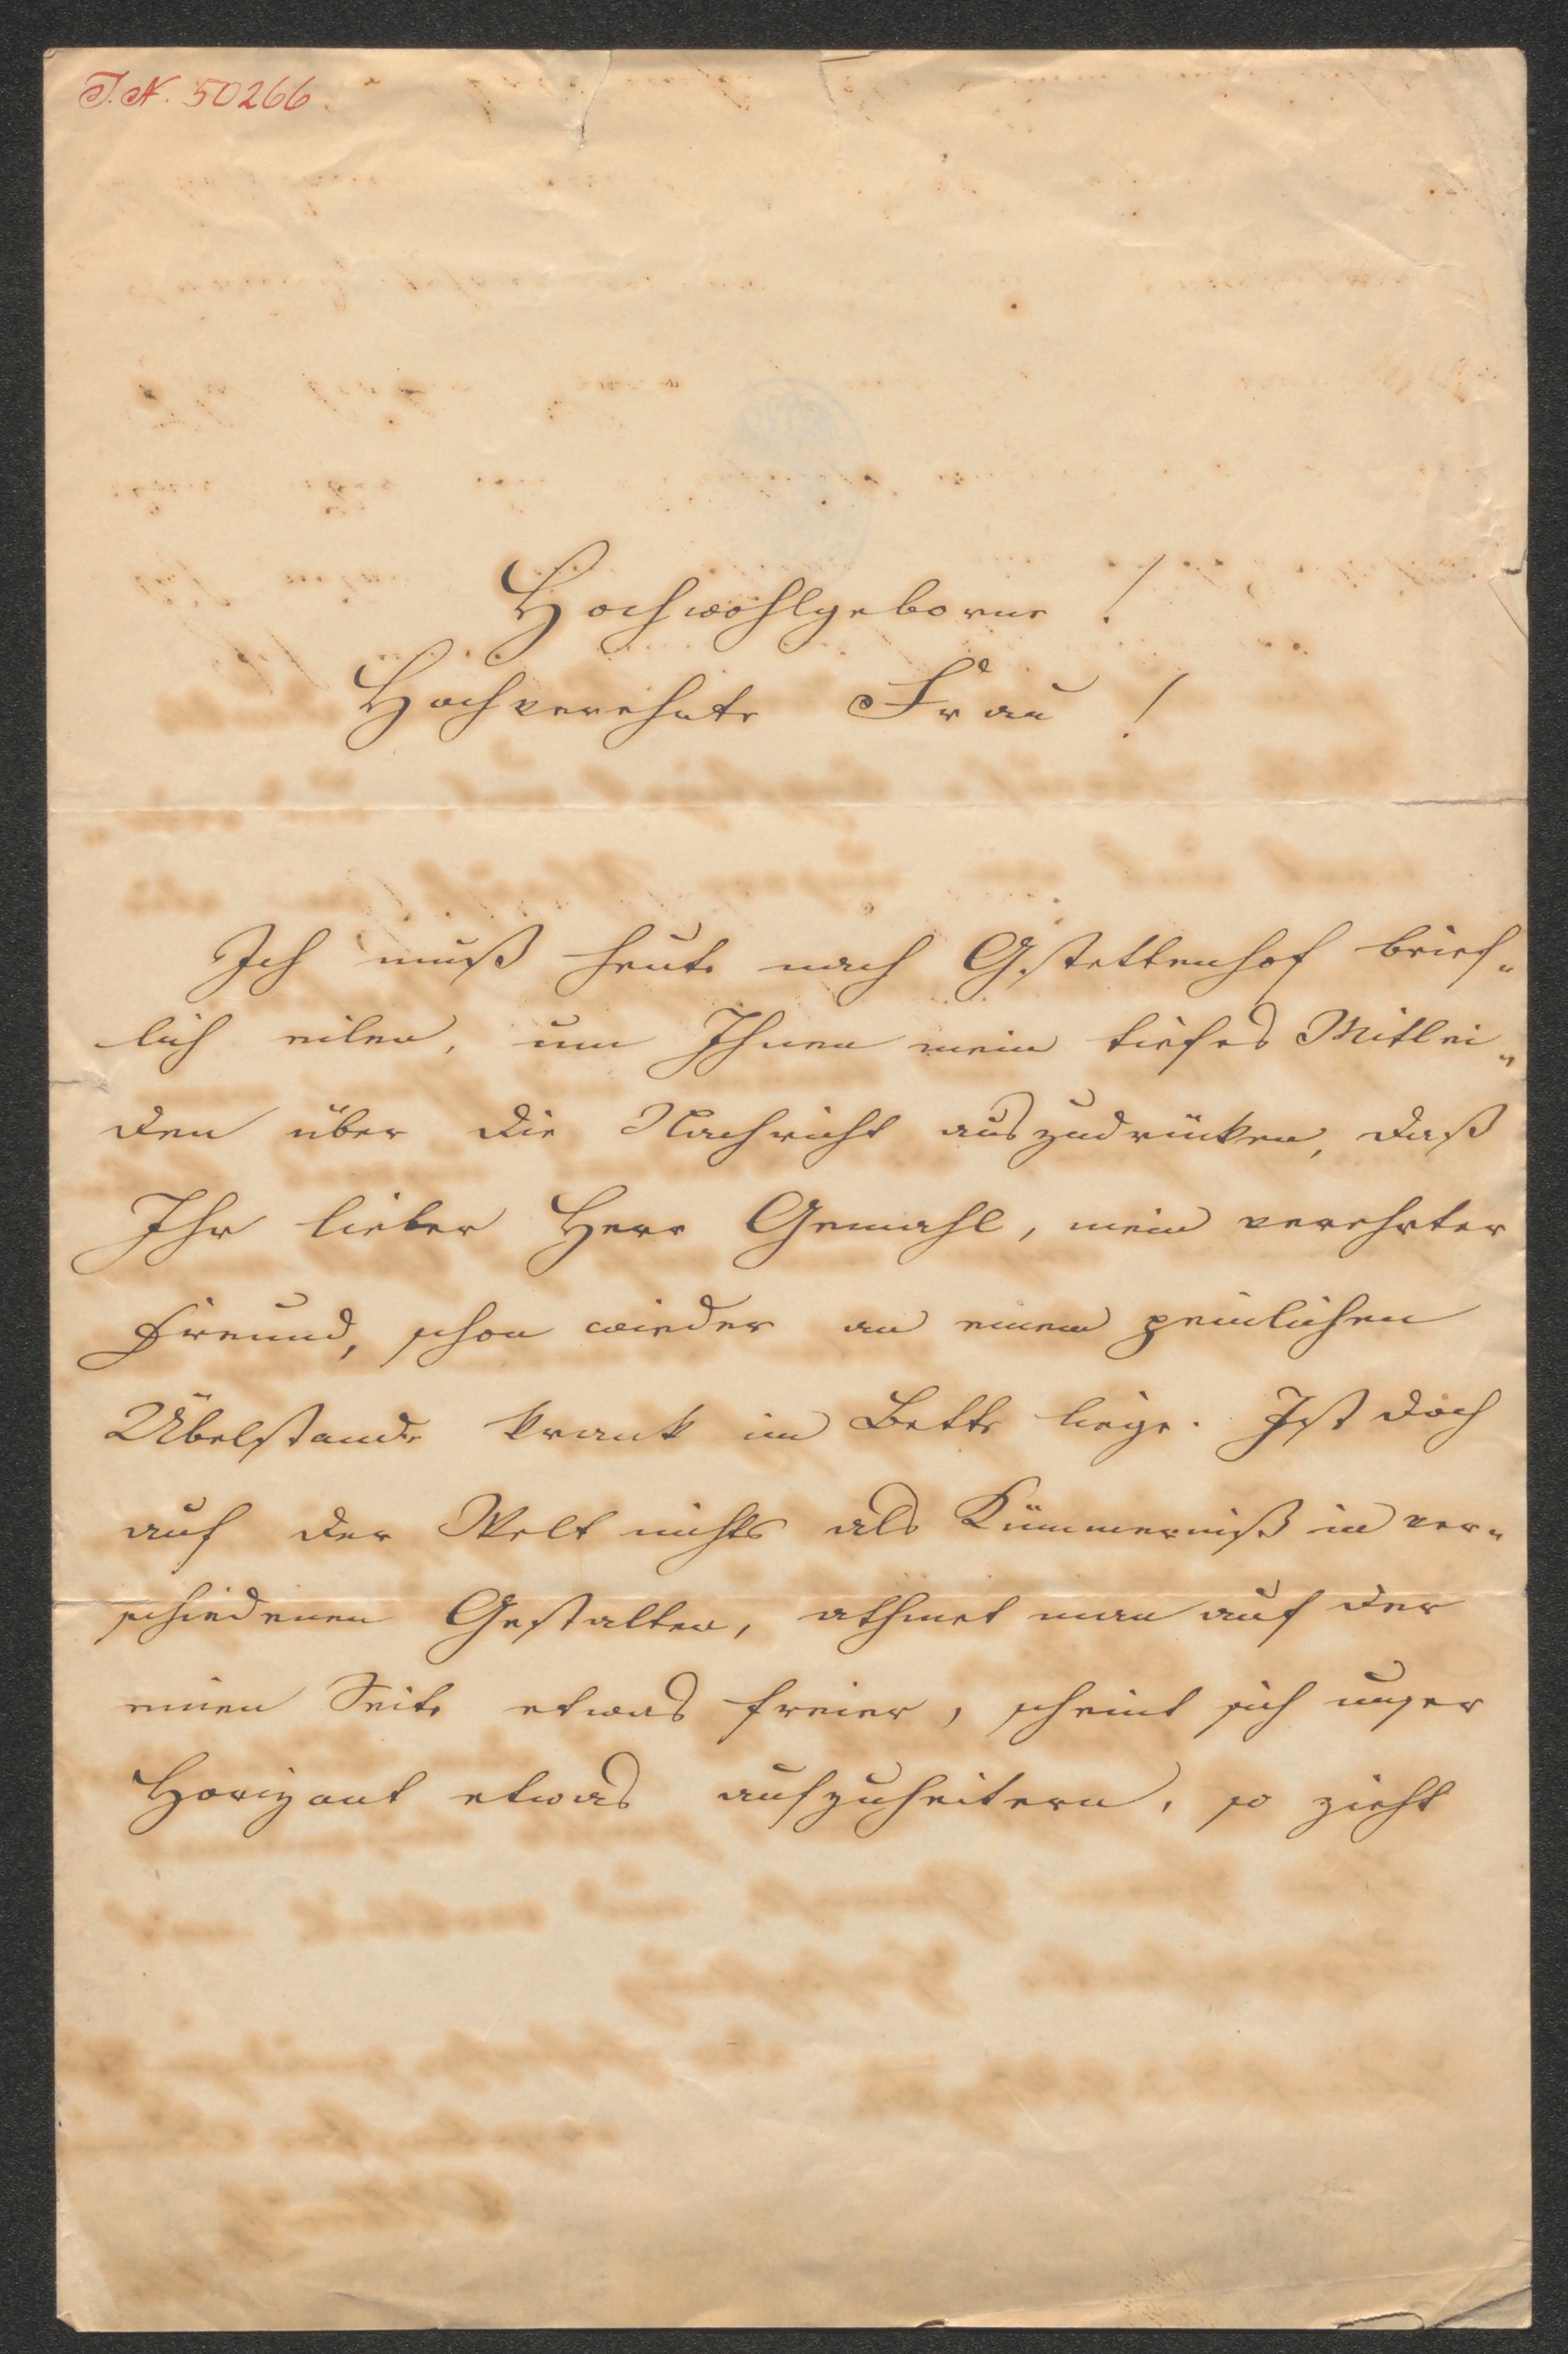 J. N. 50266
Hochwohlgeborne!
Hochverehrte Frau!
Ich muß heute nach Gstettenhof brief-
lich eilen, um Ihnen mein tiefes Mitlei-
den über die Nachricht auszudrücken, daß
Ihr lieber Herr Gemahl, mein verehrter
Freund, schon wieder an einem peinlichen
Übelstande krank im Bette liege. Ist doch
auf der Welt nichts als Kümmerniß in ver-
schiedenen Gestalten, athmet man auf der
einen Seite etwas freier, scheint sich unser
Horizont etwas aufzuheitern, so zieht